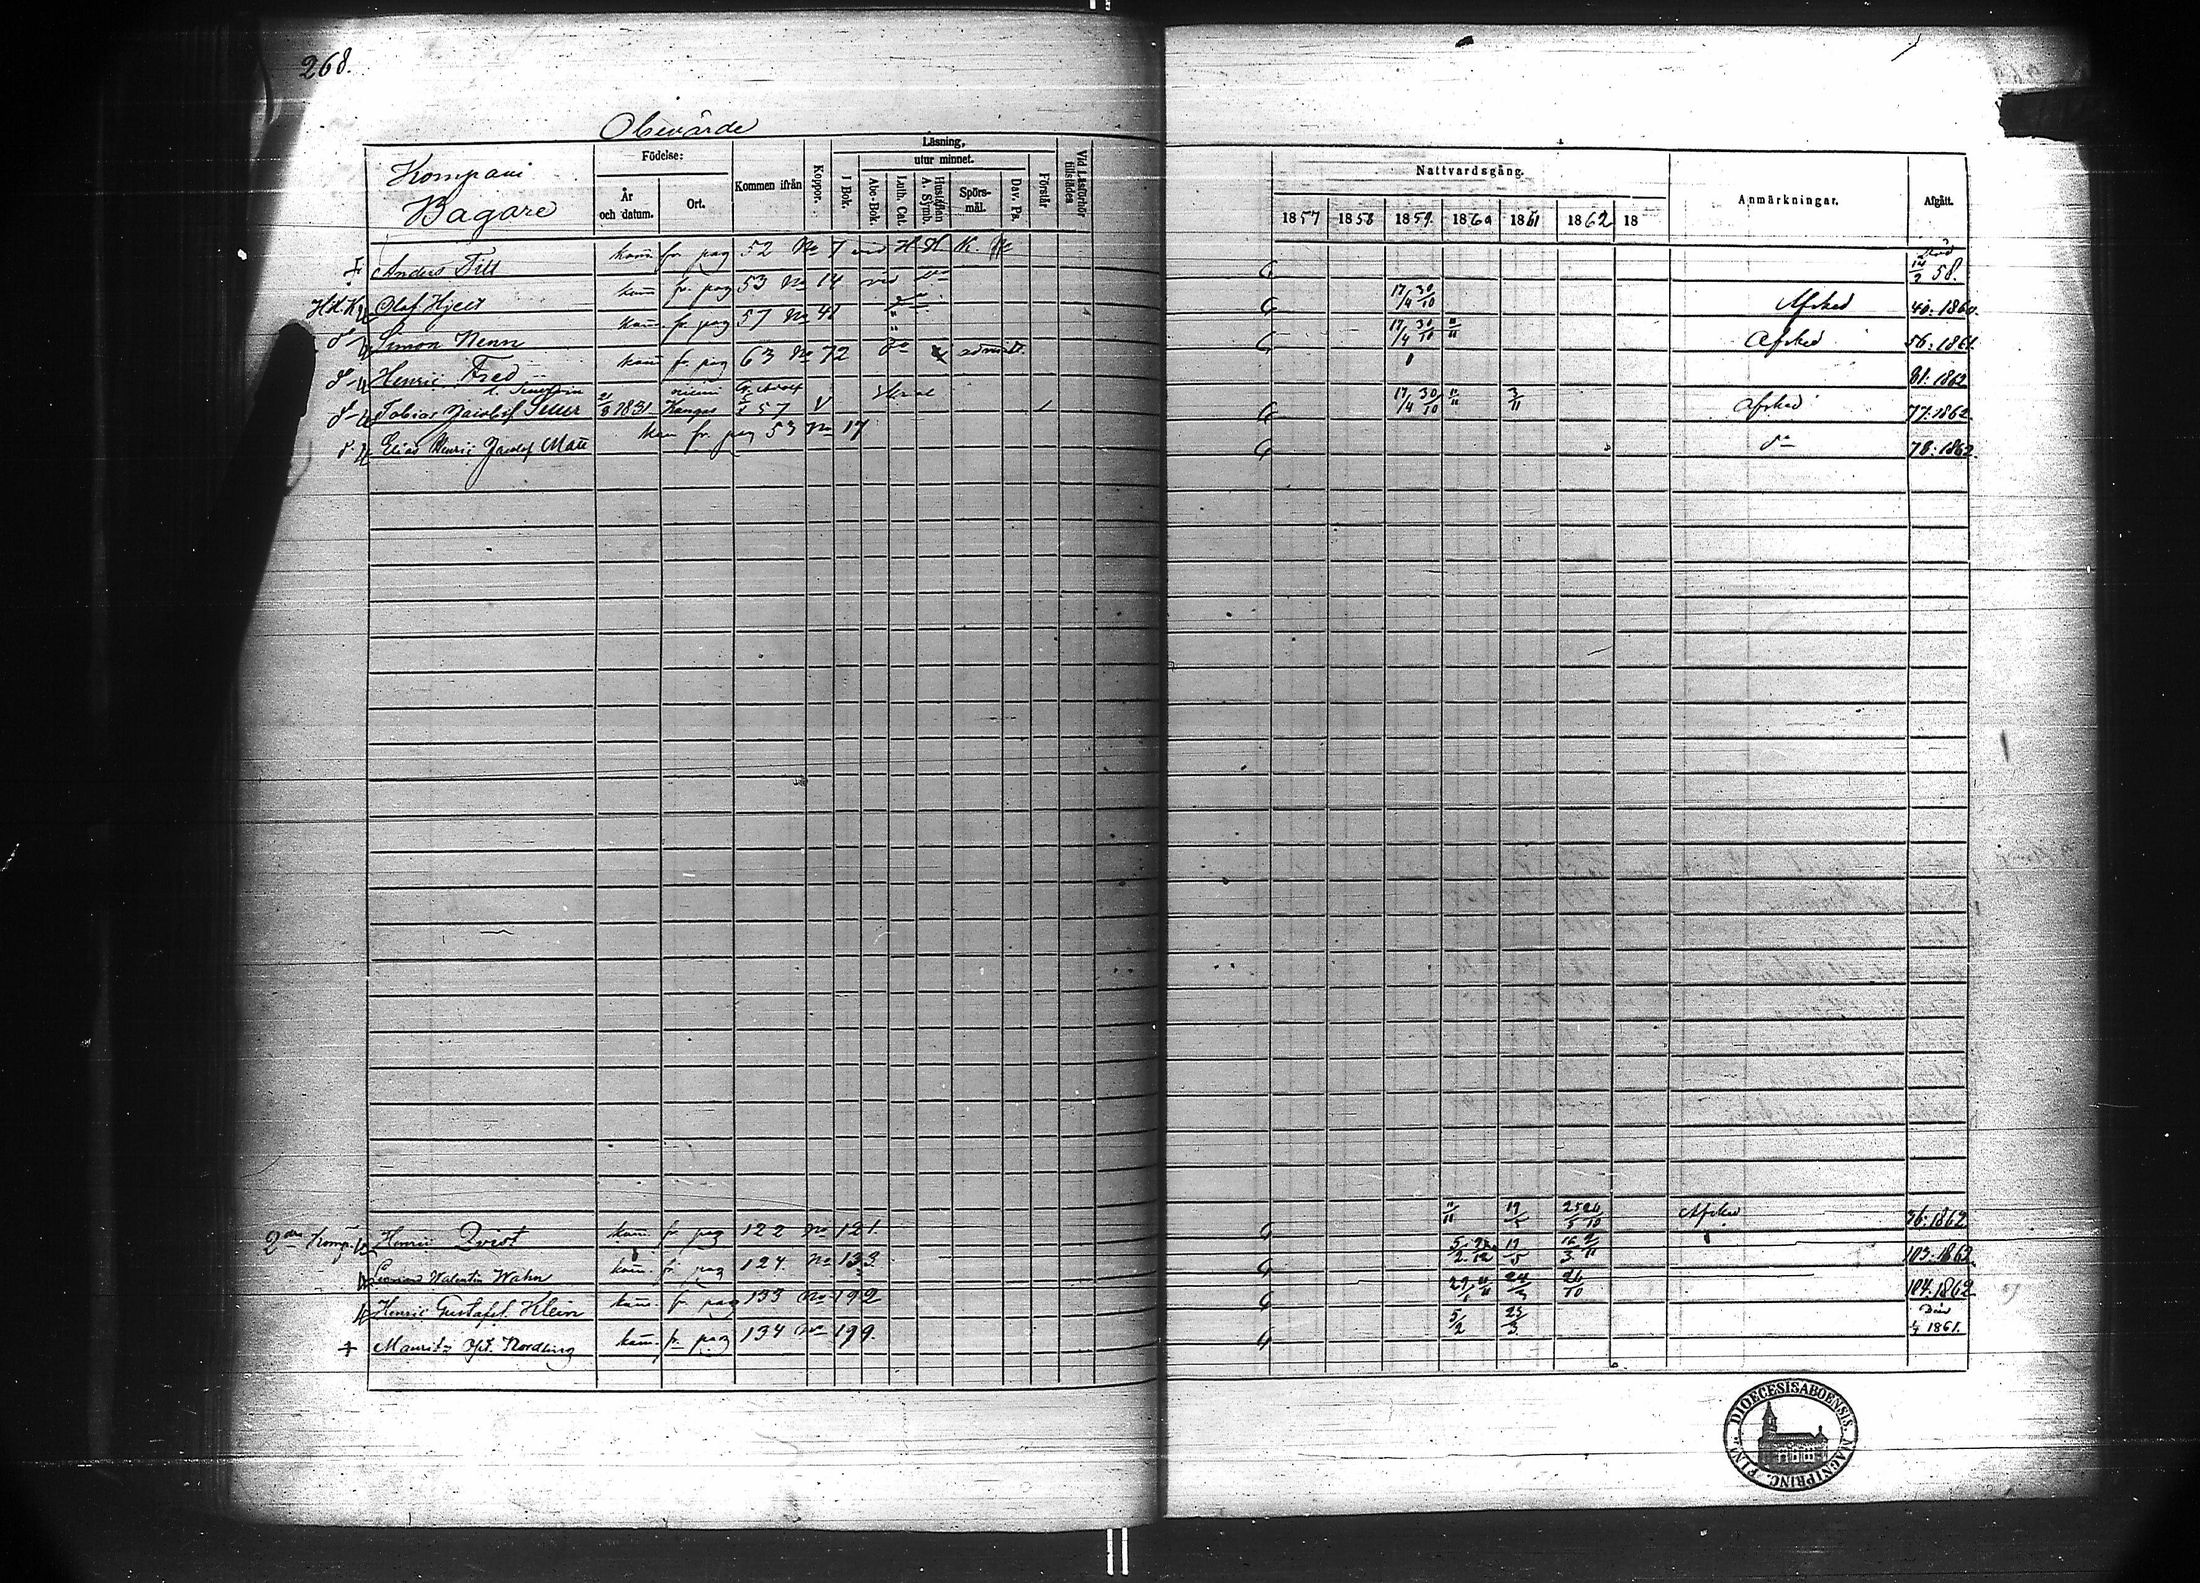 268.
Obevärde
Kompani
Bagare
Födelse:
År och datum.
Ort.
Kommen ifrån
Koppor.
Läsning,
utur minnet.
I Bok.
Abc-Bok.
Luth. Cat.
Hustaflan A. Symb.
Spörs-mål.
Dav. Ps.
Förstår
Vid Läsförhör tillstädes
Nattvardsgång.
1857 1858 1859. 1860 1861 1862 18
Anmärkningar.
Afgått.
Anders Till kom fr. pag 52 No 7 G 14/2 58.
Olof Hjelt kom fr. pag 53 No 14 G 17/4 30/10 Afsked 40: 1860.
Simon Nenn kom fr. pag 57 No 41 G 17/4 30/10 11/11 Afsked 56: 1861.
Henric Fred kom fr. pag 63 No 72 81: 1862
Tobias Jacobsf 1831 Kangas 57 G 17/4 30/10 11/11 3/11 Afsked 77: 1862.
Elias Henric Jacobsf Matt kom fr. pag 53 No 17 G do 78: 1862.
2dra Komp. Henric Qvist kom fr. pag 122 No 121. G 11/11 19/5 25/5 26/10 Afsked 36: 1862
Walentin Wahn kom. fr. pag 124. No 133. G 103: 1862.
Henric Gustafsf. Klein kom. fr. pag 133 No 192 G 26/10 104: 1862
Mauritz Nordling kom. fr. pag 134 No 199. G 5/2 25/3 1861.
DIOECESIS ABOENSIS MAGNI PRINC. FINL.